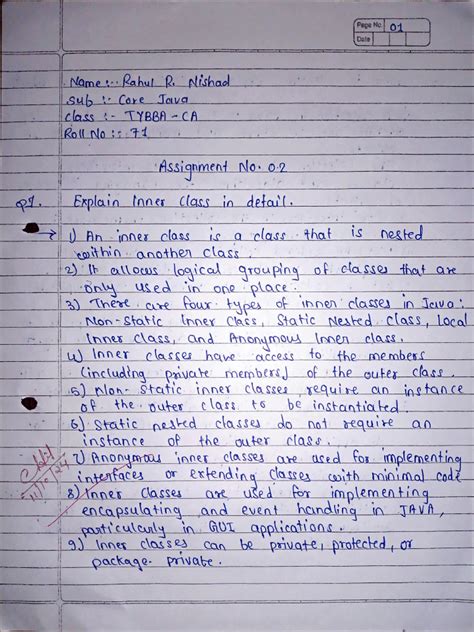 Page No. 01
Date
Name :- Rahul R. Nishad
Sub :- Core Java
Class :- TYBBA - CA
Roll No :: 71
Assignment No. 02
Q1. Explain Inner Class in detail.
→ 1) An inner class is a class that is nested
within another class.
2) It allows logical grouping of classes that are
only used in one place.
3) There are four types of inner classes in Java:
Non-Static Inner Class, Static Nested Class, Local
Inner class, and Anonymous Inner class.
4) Inner classes have access to the members
(including private members) of the outer class.
5) Non-Static inner classes require an instance
of the outer class to be instantiated.
6) Static nested classes do not require an
instance of the outer class.
7) Anonymous inner classes are used for implementing
interfaces or extending classes with minimal code
8) Inner classes are used for implementing
encapsulating and event handling in JAVA,
particularly in GUI applications.
9) Inner classes can be private, protected, or
package-private.